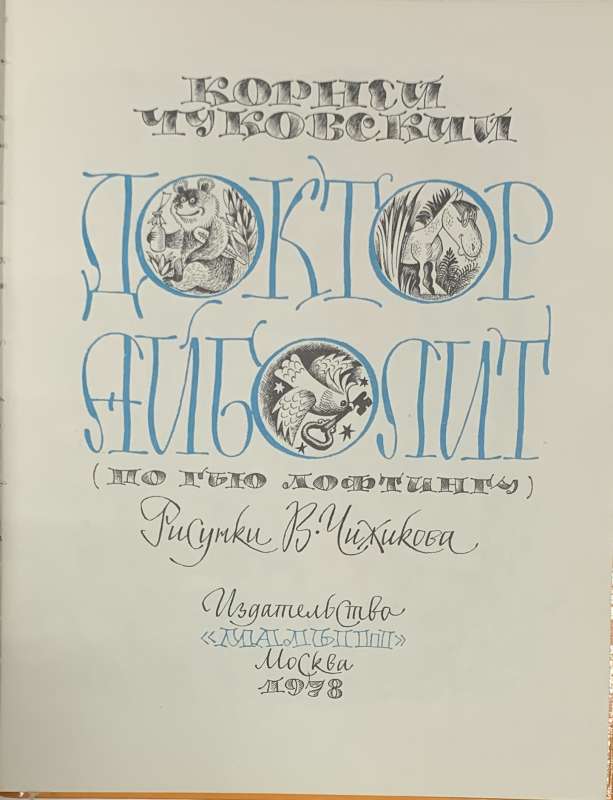 КОРНЕЙ
ЧУКОВСКИЙ
ДОКТОР
АЙБОЛИТ
(ПО ГЬЮ ЛОФТИНГУ)
Рисунки В. Чижикова
Издательство
«МАЛЫШ»
Москва
1978